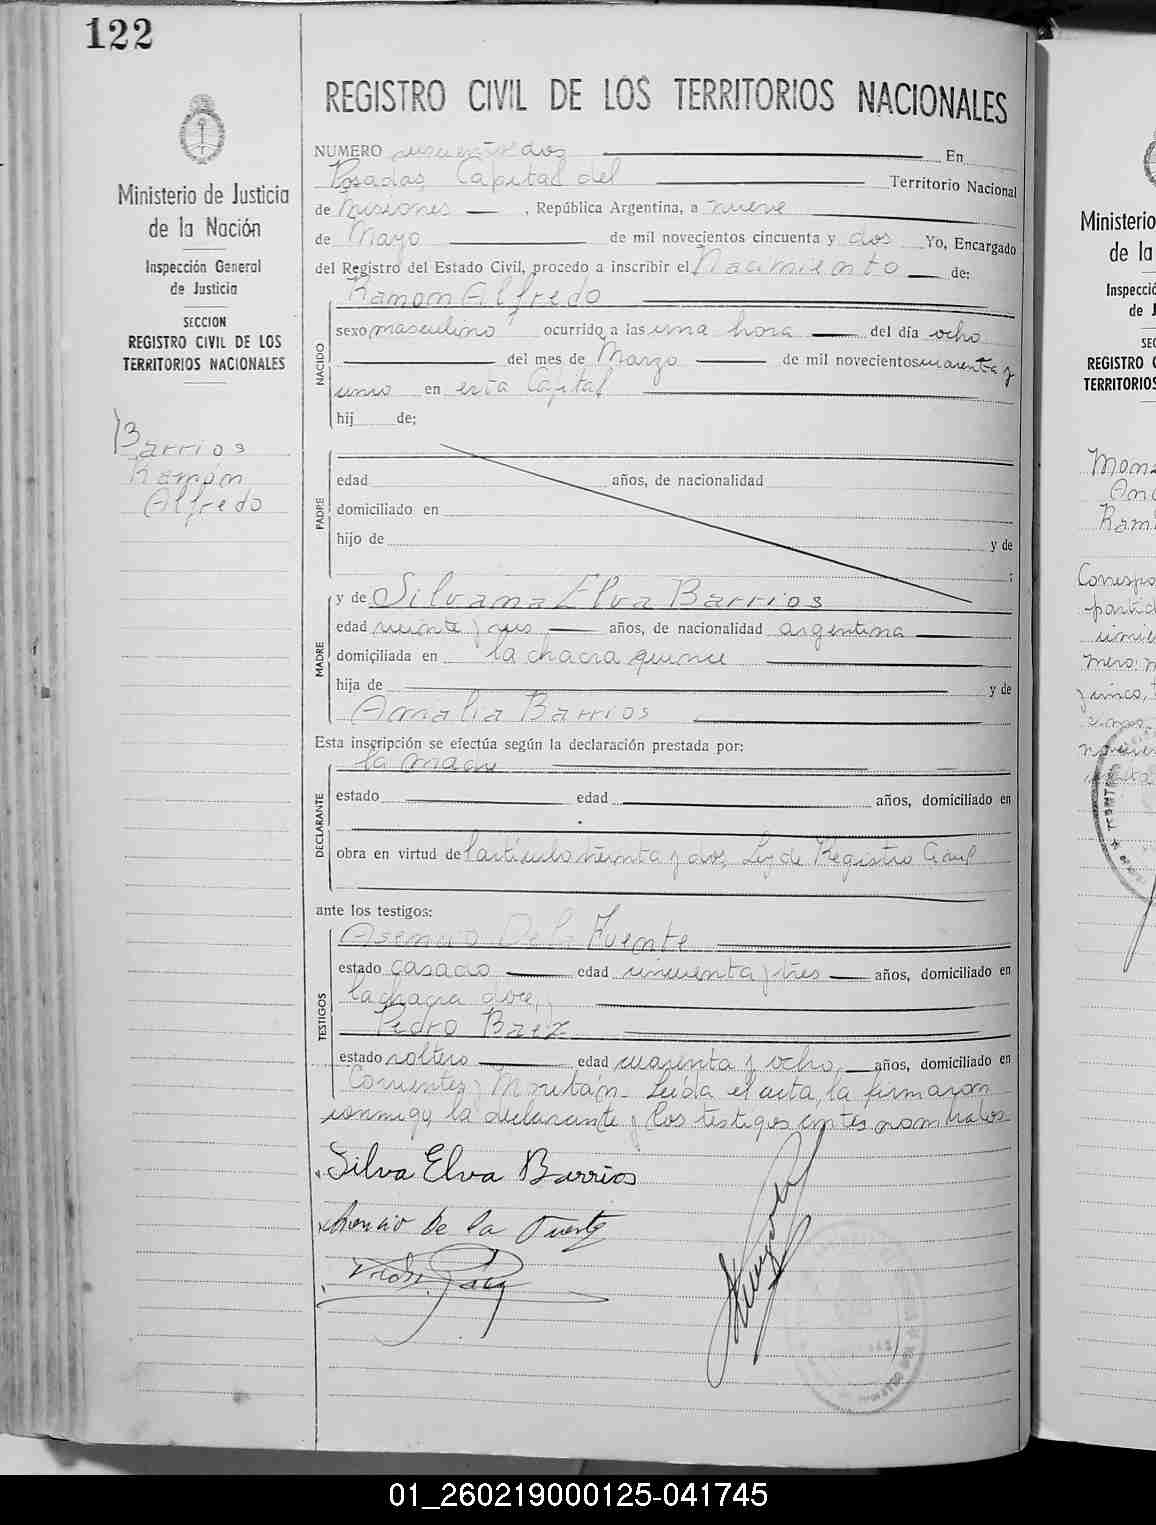 122
REGISTRO CIVIL DE LOS TERRITORIOS NACIONALES
Ministerio de Justicia
de la Nación
Inspección General
de Justicia
SECCION
REGISTRO CIVIL DE LOS
TERRITORIOS NACIONALES
Barrios
Ramón
Alfredo
NUMERO cincuentidos En
Posadas, Capital del Territorio Nacional
de Misiones , República Argentina, a nueve
de Mayo de mil novecientos cincuenta y dos Yo, Encargado
del Registro del Estado Civil, procedo a inscribir el Nacimiento de:
NACIDO
Ramón Alfredo
sexo masculino ocurrido a las una hora del día ocho
del mes de Marzo de mil novecientos cuarenta y
uno en esta Capital
hij de;
PADRE
edad años, de nacionalidad
domiciliado en
hijo de y de
;
MADRE
y de Silvana Elva Barrios
edad veinte y seis años, de nacionalidad argentina
domiciliada en la chacra quince
hija de y de
Amalia Barrios
Esta inscripción se efectúa según la declaración prestada por:
DECLARANTE
la madre
estado edad años, domiciliado en
obra en virtud de l'artículo treinta y dos, Ley de Registro Civil
ante los testigos:
TESTIGOS
Asencio De la Fuente
estado casado edad cincuenta y tres años, domiciliado en
la chacra doce,
Pedro Baez
estado soltero edad cuarenta y ocho años, domiciliado en
Corrientes y Moritán. Leída el acta, la firmaron
conmigo, la declarante y los testigos antes nombrados.
Silva Elva Barrios
Asencio De la Fuente
Pedro Baez
Ministerio
de la
Inspecció
de J
SEC
REGISTRO C
TERRITORIOS
01_260219000125-041745